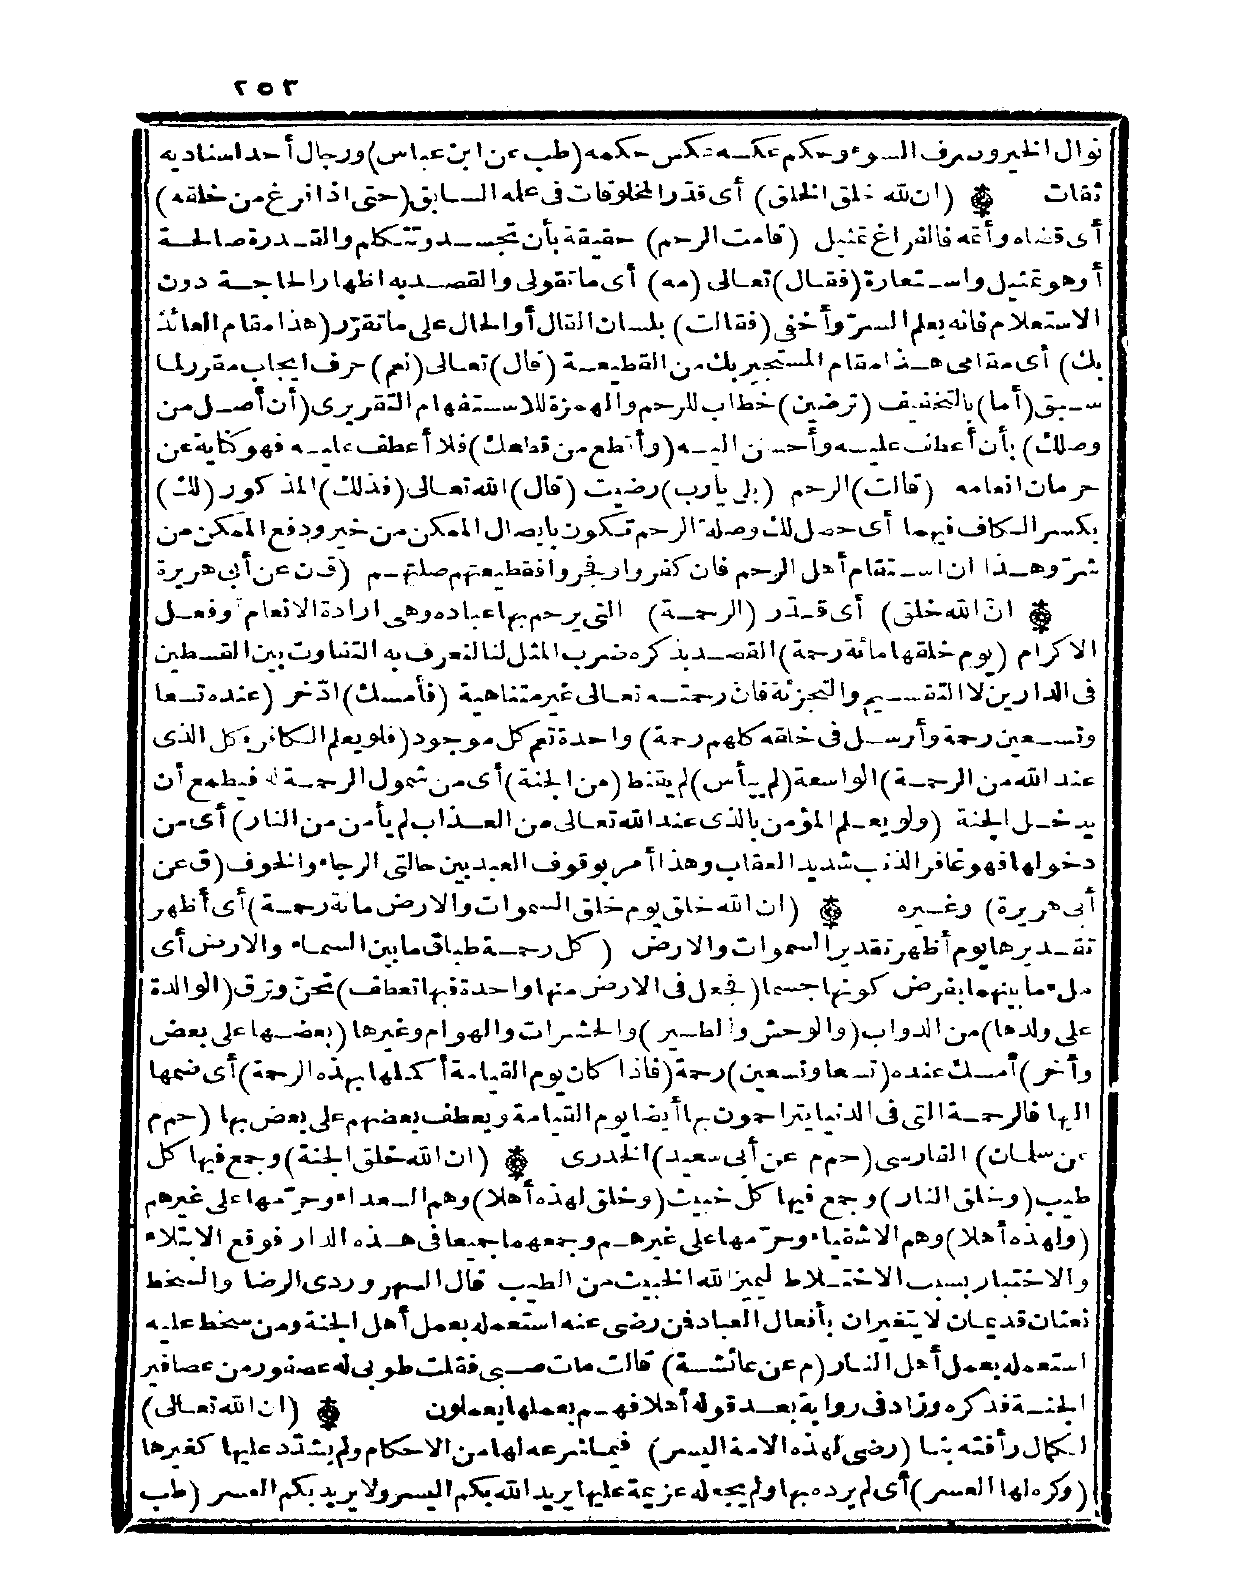 ٢٥٣
نوال الخير وصرف السوء وحكم عكسه عكس حكمه (طب عن ابن عباس) ورجال أحد اسناديه
ثقات ۞ (ان لله خلق الخلق) أى قدر المخلوقات فى علمه السابق (حتى اذا فرغ من خلقه)
أى قضاه وأتمه فالفراغ تمثيل (قامت الرحم) حقيقة بأن تجسد وتتكلم والقدرة صالحة
أوهو تمثيل واستعارة (فقال) تعالى (مه) أى ما تقولى والقصد به اظهار الحاجة دون
الاستعلام فانه يعلم السرّ وأخفى (فقالت) بلسان القال أو الحال على ما تقرّر (هذا مقام العائذ
بك) أى مقامى هذا مقام المستجير بك من القطيعة (قال) تعالى (نعم) حرف ايجاب مقرر لما
سبق (أما) بالتخفيف (ترضين) خطاب للرحم والهمزة للاستفهام التقريرى (أن أصل من
وصلك) بأن أعطف عليه وأحسن اليه (وأقطع من قطعك) فلا أعطف عليه فهو كناية عن
حرمان انعامه (قالت) الرحم (بلى يارب) رضيت (قال) الله تعالى (فذلك) المذكور (لك)
بكسر الكاف فيهما أى حصل لك وصلة الرحم تكون بايصال الممكن من خير ودفع الممكن من
شرّ وهذا ان استقام أهل الرحم فان كفروا أو فجروا فقطيعتهم صلتهم (ق ن عن أبى هريرة
۞ انّ الله خلق) أى قدّر (الرحمة) التى يرحم بها عباده وهى ارادة الانعام وفعل
الاكرام (يوم خلقها مائة رحمة) القصد بذكره ضرب المثل لنا لنعرف به التفاوت بين القسطين
فى الدارين لا التقسيم والتجزئة فان رحمته تعالى غير متناهية (فأمسك) ادّخر (عنده تسعا
وتسعين رحمة وأرسل فى خلقه كلهم رحمة) واحدة تعم كل موجود (فلو يعلم الكافر بكل الذى
عند الله من الرحمة) الواسعة (لم ييأس) لم يقنط (من الجنة) أى من شمول الرحمة له فيطمع أن
يدخل الجنة (ولو يعلم المؤمن بالذى عند الله تعالى من العذاب لم يأمن من النار) أى من
دخولها فهو غافر الذنب شديد العقاب وهذا أمر بوقوف العبد بين حالتى الرجاء والخوف (ق عن
أبى هريرة) وغيره ۞ (ان الله خلق يوم خلق السموات والارض مائة رحمة) أى أظهر
تقديرها يوم أظهر تقدير السموات والارض (كل رحمة طباق ما بين السماء والارض أى
ملء ما بينهما بفرض كونها جسما (فجعل فى الارض منها واحدة فبها تعطف) تحنّ وترق (الوالدة
على ولدها) من الدواب (والوحش والطير) والحشرات والهوام وغيرها (بعضها على بعض
وأخر) أمسك عنده (تسعا وتسعين) رحمة (فاذا كان يوم القيامة أكملها بهذه الرحمة) أى ضمها
اليها فالرحمة التى فى الدنيا يتراحمون بها أيضا يوم القيامة ويعطف بعضهم على بعض بها (حم م
عن سلمان) الفارسى (حم م عن أبى سعيد) الخدرى ۞ (ان الله خلق الجنة) وجمع فيها كل
طيب (وخلق النار) وجمع فيها كل خبيث (وخلق لهذه أهلا) وهم السعداء وحرّمها على غيرهم
(ولهذه أهلا) وهم الاشقياء وحرّمها على غيرهم وجمعهما جميعا فى هذه الدار فوقع الابتلاء
والاختبار بسبب الاختلاط ليميز الله الخبيث من الطيب قال السهروردى الرضا والسخط
نعتان قديمان لا يتغيران بأفعال العباد فمن رضى عنه استعمله بعمل أهل الجنة ومن سخط عليه
استعمله بعمل أهل النار (م عن عائشة) قالت مات صبى فقلت طوبى له عصفور من عصافير
الجنة فذكره وزاد فى رواية بعد قوله أهلا فهم بعملها يعملون ۞ (ان الله تعالى)
لكمال رأفته بنا (رضى لهذه الامة اليسر) فيما شرعه لها من الاحكام ولم يشدّد عليها كغيرها
(وكره لها العسر) أى لم يرده بها ولم يجعله عزيمة عليها يريد الله بكم اليسر ولا يريد بكم العسر (طب